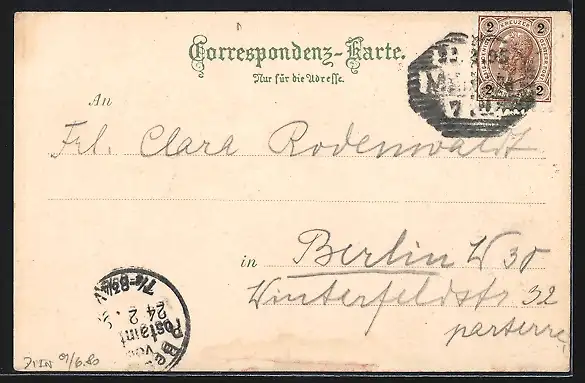 Correspondenz-Karte.
Nur für die Adresse.
2 KREUZER 2
2 2
An
Frl. Clara Rodenwaldt
in Berlin W 30
Winterfeldstr 32
parterre
7¼-8½V
24 2
Postamt